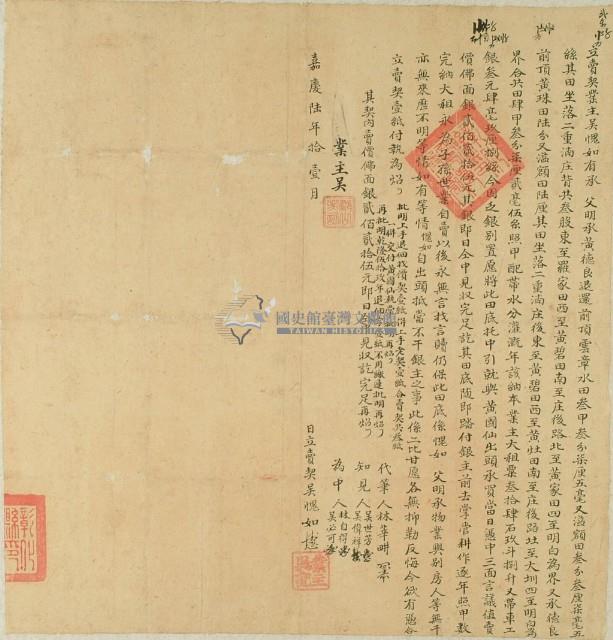 立賣契業主吳愧如有承 父明承黃德良退還前頂雲章水田叁甲叁分柒厘五毫又溢額田叁分叁厘柒毫五
絲其田坐落二重湳庄背共叁股東至羅家田西至黃碧田南至庄後路北至黃家田四至明白為界又承德良
前頂黃珠田陸分又溢額田陸厘其田坐落二重湳庄後東至黃碧田西至黃灶田南至庄後路北至大圳四至明白為
界合共田肆甲叁分柒厘貳毫伍絲照甲配帶水分灌溉年該納本業主大租粟叁拾肆石玖斗捌升又帶車工
銀叁元肆毫玖厘捌絲今因乏銀別置愿將此田底托中引就與黃國仙出頭承買當日憑中三面言議值賣
價佛面銀貳佰貳拾伍元其銀即日仝中見收完足訖其田底隨即踏付銀主前去掌管耕作逐年照甲數
完納大租永為子孫世業自賣以後永無言找言贖仍保此田底係愧如 父明承物業與別房人等無干
亦無來歷不明等情如有等情愧如自出頭抵當不干銀主之事此係二比甘愿各無抑勒反悔今欲有憑合
立賣契壹紙付執為炤
批明上手退佃找價契壹紙併上手老契壹紙合賣契共叁紙
一併交付黃國仙執掌
再批明乾隆伍拾玖年退佃 紙不用繳連批明再炤
其契內賣價佛面銀貳佰貳拾伍元即日 見收訖完足再炤
代筆人林華
知見人吳世芳
吳偉祥
為中人林自得
吳必可
業主吳
嘉慶陸年拾壹月 日立賣契吳愧如
國史館臺灣文獻館
TAIWAN HISTORICA